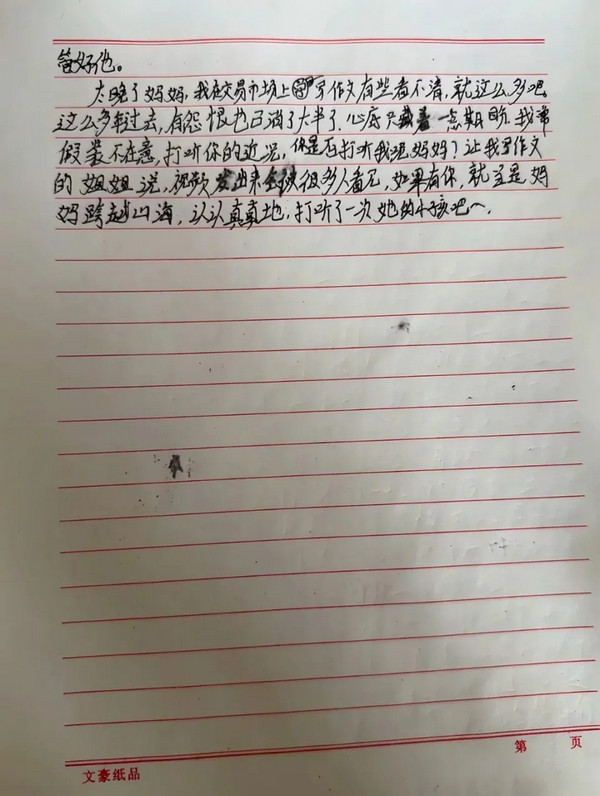 管好他。
太晚了妈妈，我在交易市场上写作文有些看不清，就这么多吧
这么多年过去，有怨恨也已消了大半了，心底只藏着一点期盼，我常
假装不在意，打听你的近况，你是否打听我呢妈妈？让我写作文
的姐姐说，视频发出来会被很多人看见，如果有你，就当是妈
妈跨越山海，认认真真地，打听了一次她的小孩吧～
第 页
文豪纸品